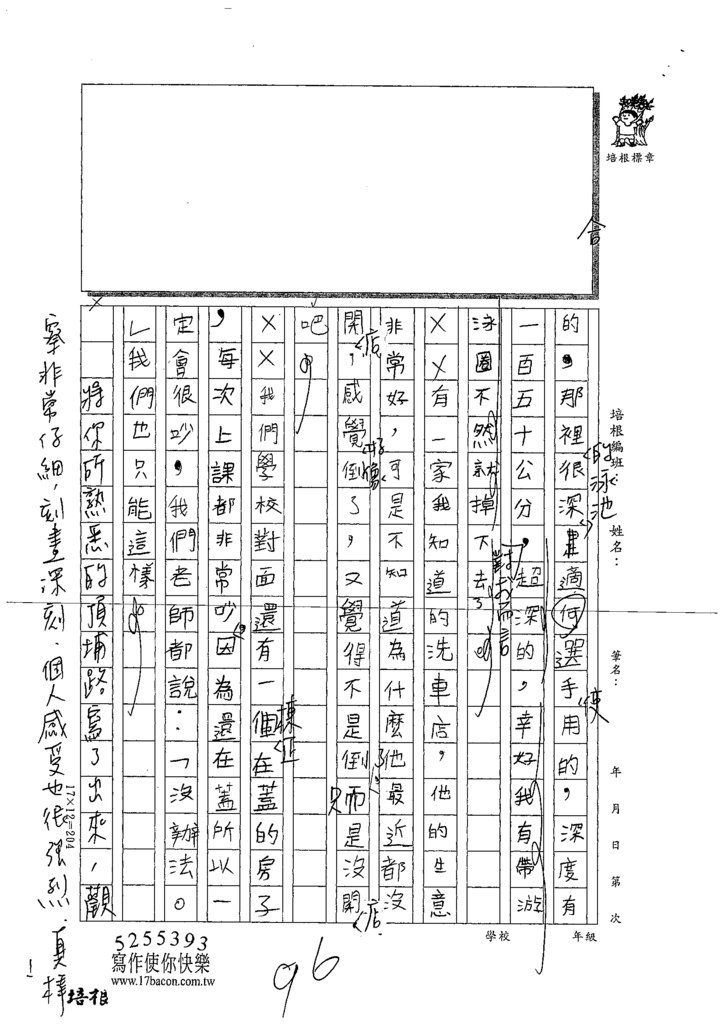 培根標章
培根編班：
姓名：
筆名：
年 月 日 第 次
學校
年級
合
的，那裡很深畢適何選手用的，深度有
的泳池
使
一百五十公分，超深的，幸好我有帶游
對我而言
泳圈不然就掉下去了
ＸＸ有一家我知道的洗車店，他的生意
非常好，可是不知道為什麼他最近都沒
了
開，感覺倒了，又覺得不是倒而是沒開
店
好像
只
店
吧。
ＸＸ我們學校對面還有一個在蓋的房子
棟正
，每次上課都非常吵因為還在蓋所以一
定會很吵，我們老師都說：「沒辦法。
」我們也只能這樣
將你所熟悉的頂埔路寫了出來，觀
察非常仔細，刻畫深刻．個人感受也很強烈．真棒！
17×12=204
5255393
寫作使你快樂
www.17bacon.com.tw
培根
96